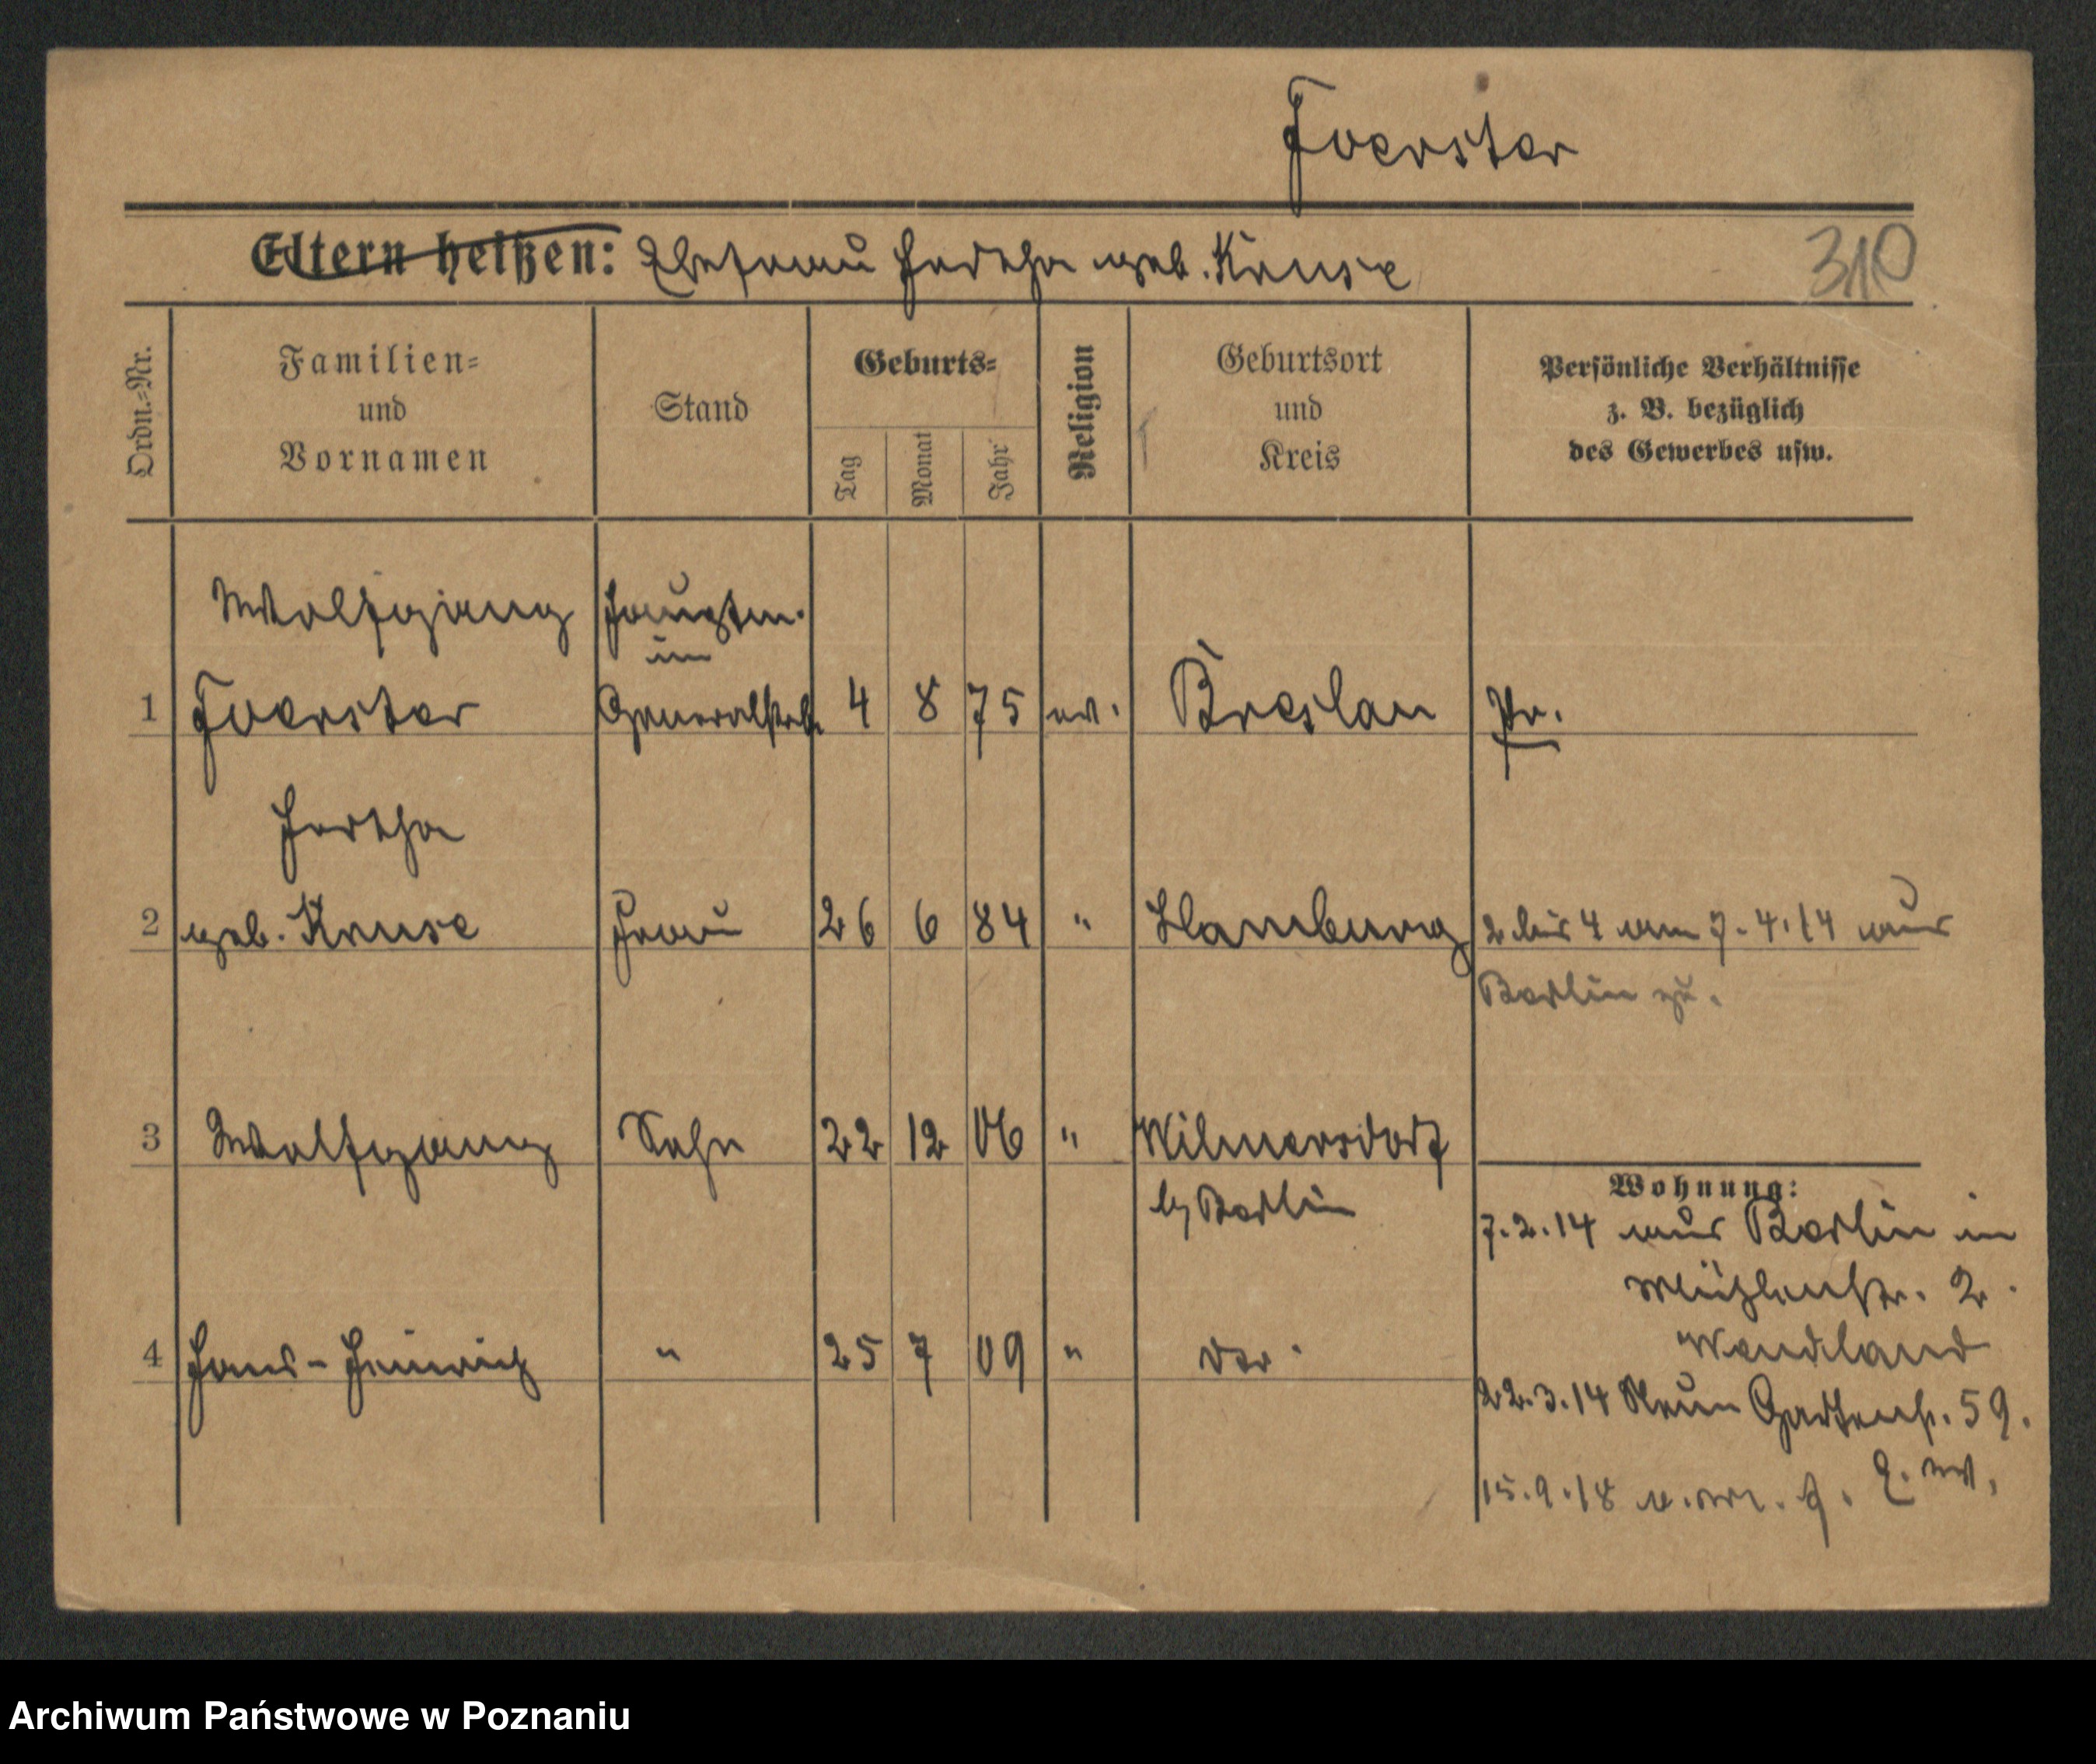 Foerster
Eltern heißen: Ehefrau Hertha geb. Kruse
310
Ordn.-Nr.
Familien-
und
Vornamen
Stand
Geburts-
Tag
Monat
Jahr
Religion
Geburtsort
und
Kreis
Persönliche Verhältnisse
z. B. bezüglich
des Gewerbes usw.
Wolfgang Hauptm.
im
1 Foerster Generalstab 4 8 75 ev. Breslau Pr.
Hertha
2 geb. Kruse Frau 26 6 84 " Hamburg 2 bis 4 am 7.4.14 aus
Berlin zu.
3 Wolfgang Sohn 22 12 06 " Wilmersdorf
b/ Berlin
Wohnung:
7.2.14 aus Berlin in
Mühlenstr. 2.
Wendland
4 Hans-Heinrich " 25 7 09 " der.
22.3.14 Neue Gartenstr. 59.
15.9.18
Archiwum Państwowe w Poznaniu